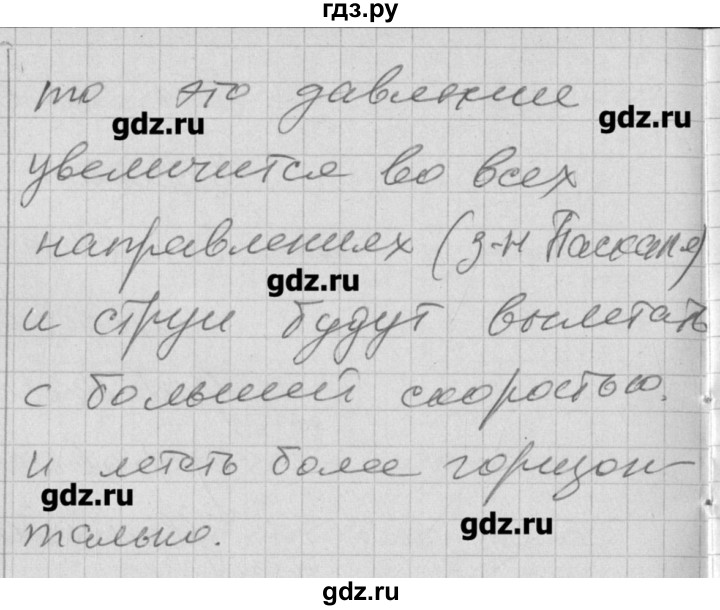 гдз.ру
то это давление
gdz.ru
gdz.ru
увеличится во всех
направлениях (з-н Паскаля)
gdz.ru
и струи будут вылетать
с большей скоростью.
и лететь более горизон-
gdz.ru
gdz.ru
тально.
gdz.ru